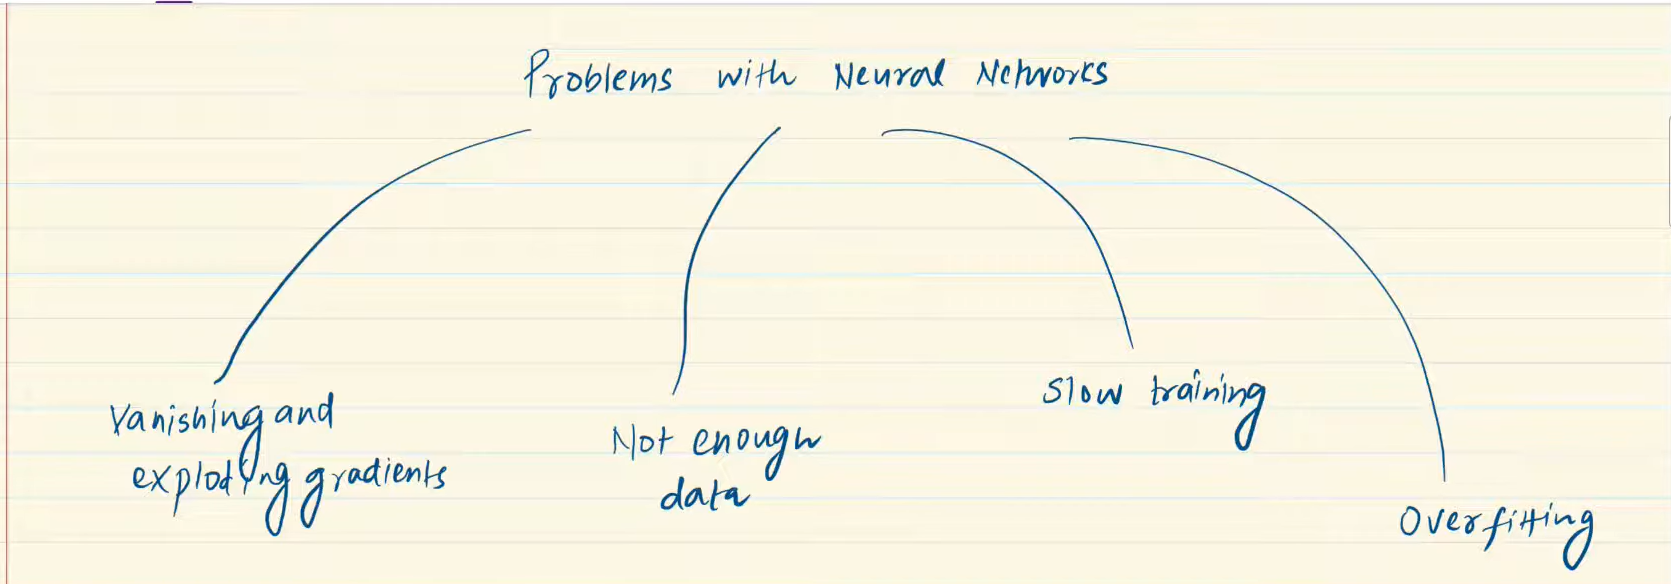 Problems with Neural Networks
Vanishing and
exploding gradients
Not enough
data
Slow training
Overfitting